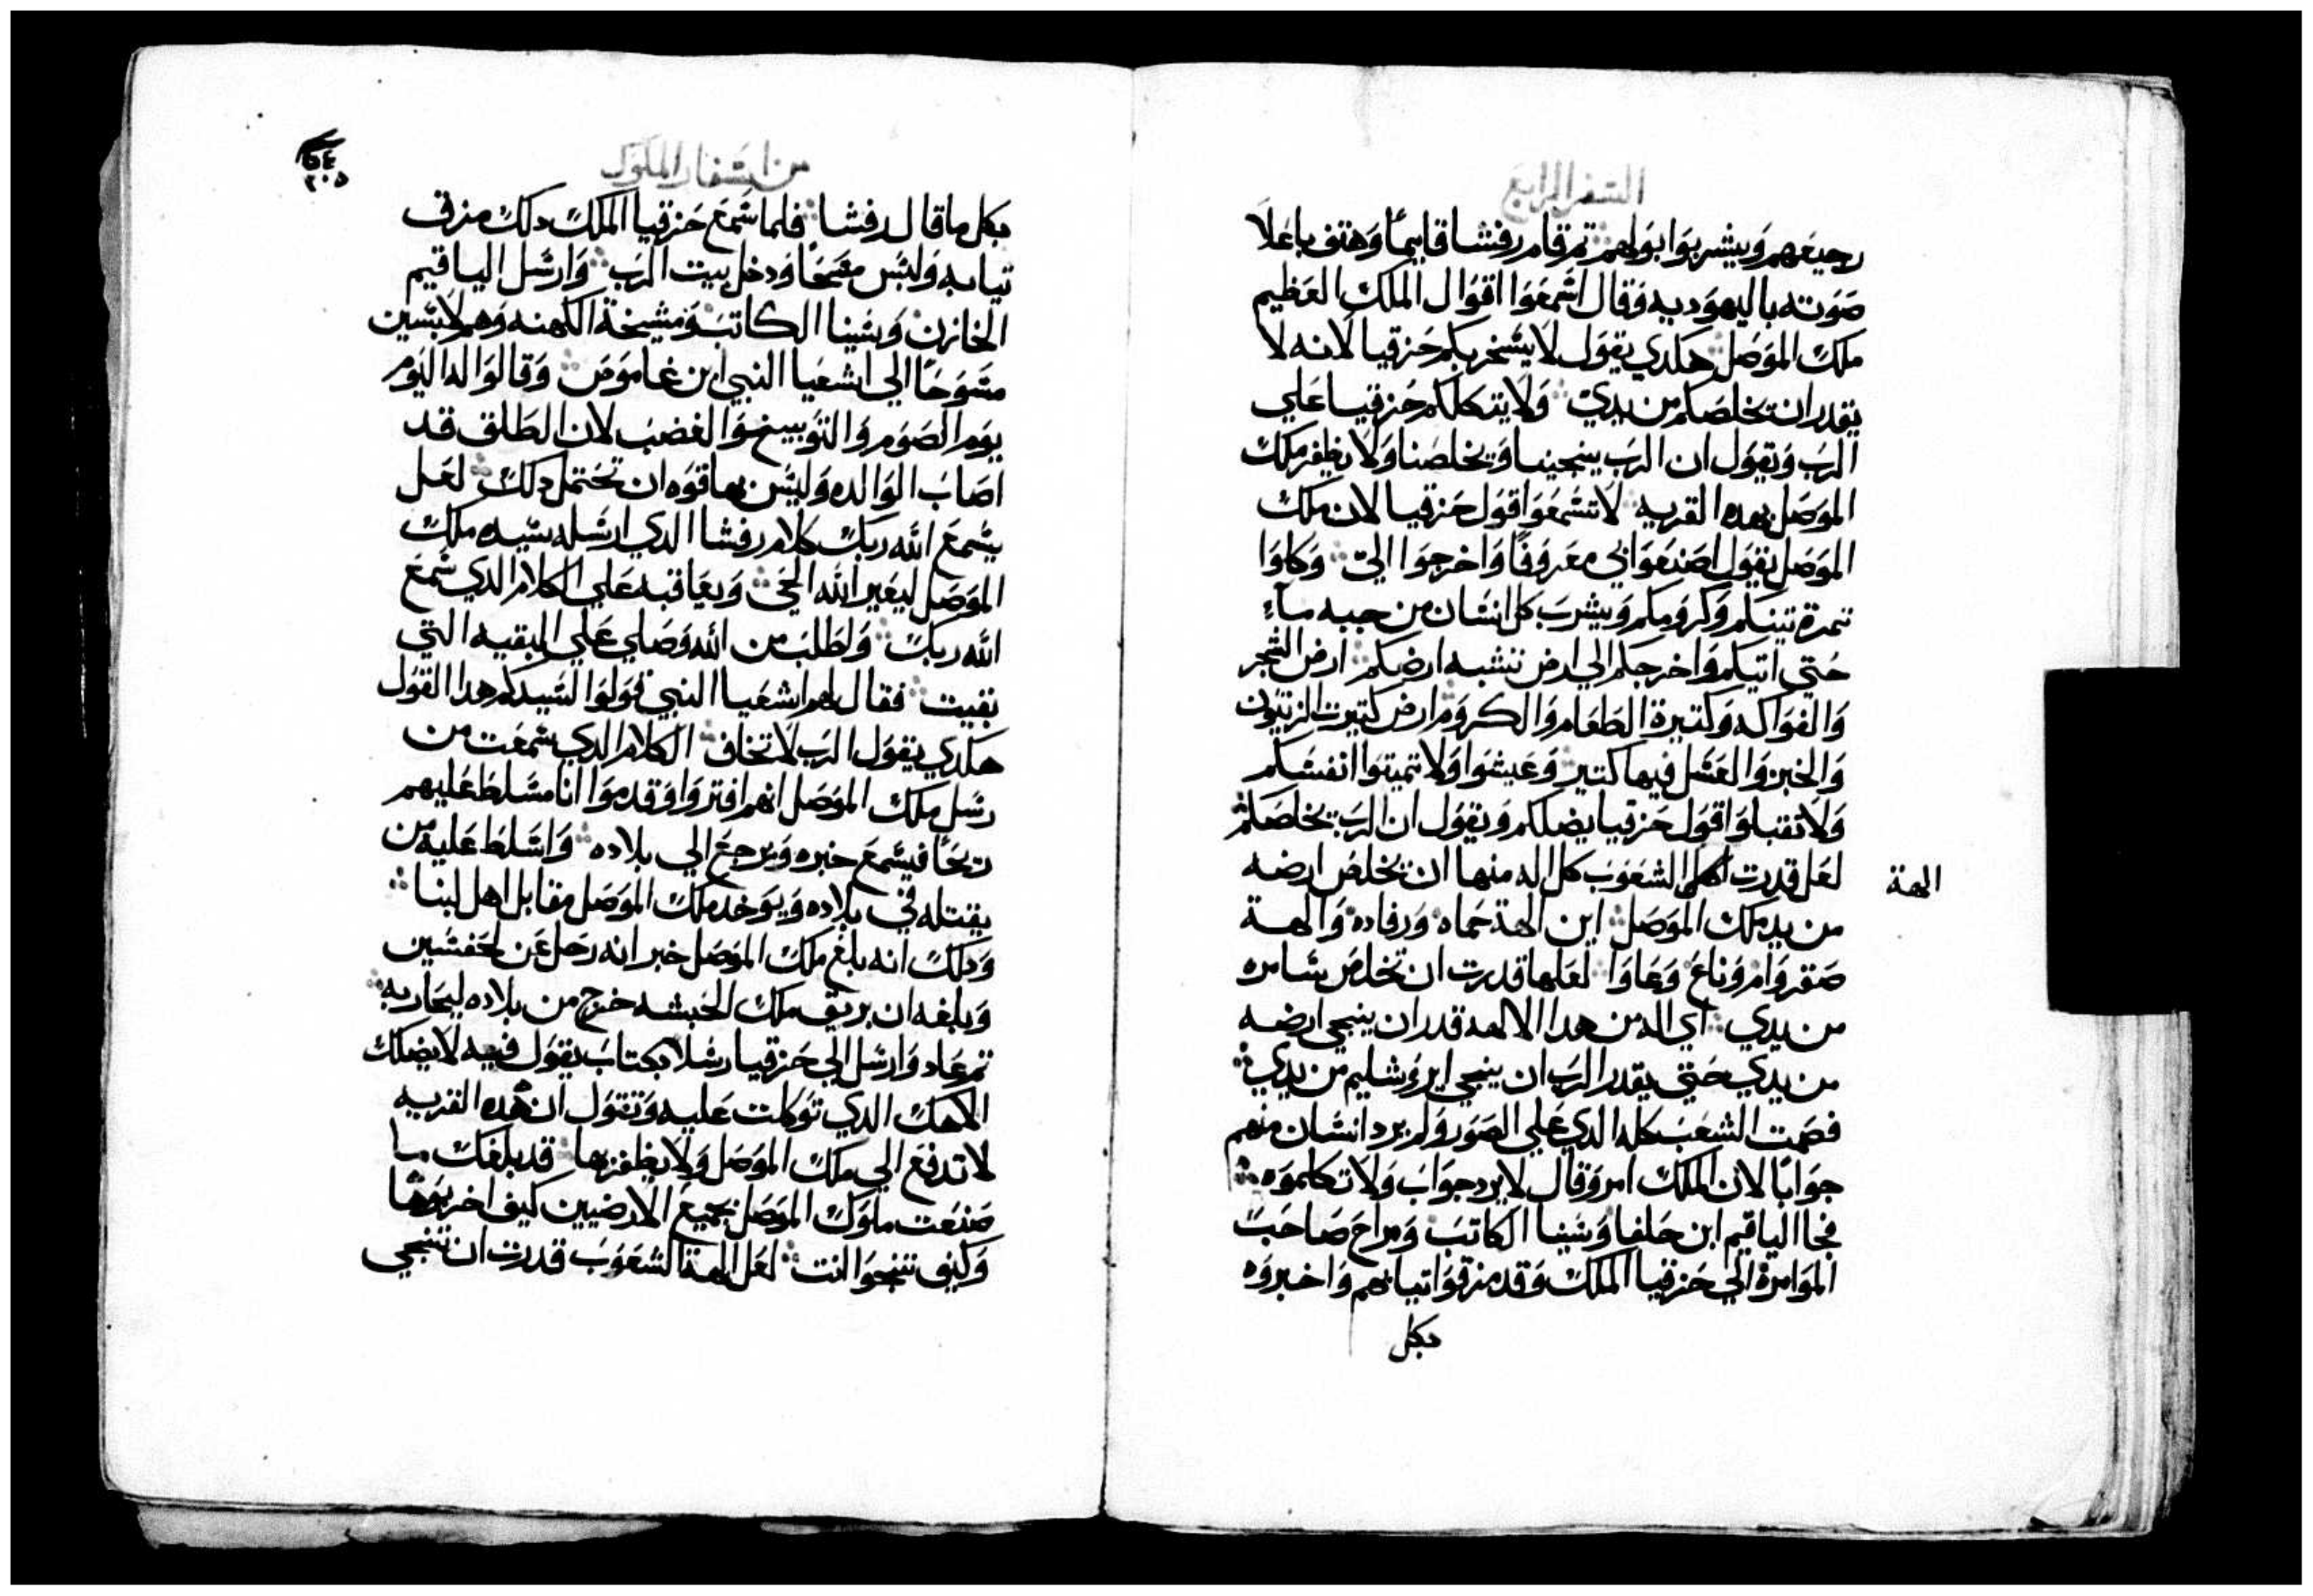 السفر الرابع
رجيعهم ويشربوا بولهم ثم قام رفشا قايما وهتف باعلا
صوته باليهوديه وقال اسمعوا اقوال الملك العظيم
ملك الموصل هكدي يقول لا يسخر بكم حزقيا لانه لا
يقدر ان يخلصكم من يدي ولا يتكلكم حزقيا علي
الرب ويقول ان الرب ينجينا ويخلصنا ولا يظفر ملك
الموصل بهده القريه لا تسمعوا قول حزقيا لان ملك
الموصل يقول اصنعوا بي معروفا واخرجوا الي وكلوا
تمرة تينكم وكرومكم ويشرب كل انسان من جبه ماء
حتي اتيكم واخرجكم الي ارض تشبه ارضكم ارض الشجر
والفواكه وكتيرة الطعام والكروم ارض كتيرت الزيتون
والخبز والعسل فيها كتير وعيشوا ولا تميتوا انفسكم
ولا تقبلوا قول حزقيا يضلكم ويقول ان الرب يخلصكم
لعل قدرت الشعوب كل اله منها ان يخلص ارضه
الهة
من يد ملك الموصل اين الهة حماه ورفاده والهة
صقروام وناع وعاوا لعلها قدرت ان تخلص شامره
من يدي اي اله من هدا الالهه قدر ان ينجي ارضه
من يدي حتي يقدر الرب ان ينجي ايروشليم من يدي
فصمت الشعب كله الدي علي الصور ولم يرد انسان منهم
جوابا لان الملك امر وقال لا يرد جواب ولا تكلموه
فجا الياقيم ابن حلفيا وشبنا الكاتب ومراح صاحب
الموامرة الي حزقيا الملك وقد مزقوا تيابهم واخبروه
بكل
من اسفار الملوك
٢٠٥
بكل ما قال رفشا فلما سمع حزقيا الملك دلك مزق
تيابه ولبس مسحا ودخل بيت الرب وارسل الياقيم
الخازن وشبنا الكاتب ومشيخة الكهنه وهم لابسين
مسوحا الي اشعيا النبي ابن عاموص وقالوا له اليوم
يوم الصوم والتوبيخ والغضب لان الطلق قد
اصاب الوالده وليس بها قوه ان تحتمل دلك لعل
يسمع الله ربك كلام رفشا الدي ارسله سيده ملك
الموصل ليعير الله الحي ويعاقبه علي الكلام الدي سمع
الله ربك واطلب من الله وصلي علي البقيه التي
بقيت فقال لهم اشعيا النبي قولوا لسيدكم هدا القول
هكدي يقول الرب لا تخاف الكلام الدي سمعت من
رسل ملك الموصل انهم افتروا وقدموا انا مسلط عليهم
ريحا فيسمع خبره ويرجع الي بلاده واسلط عليه من
يقتله في بلاده ويوخد ملك الموصل مقابل اهل لبنا
ودلك انه بلغ ملك الموصل خبر انه رحل عن لحفسين
وبلغه ان بريق ملك الحبشه خرج من بلاده ليحاربه
تم عاد وارسل الي حزقيا رسلا بكتاب يقول فيه لا يضلك
الاهك الدي توكلت عليه وتقول ان هده القريه
لا تدفع الي ملك الموصل ولا يظفر بها قد بلغك ما
صنعت ملوك الموصل بجميع الارضيين كيف اخربوها
وكيف تنجوا انت لعل الهة الشعوب قدرت ان تنجي